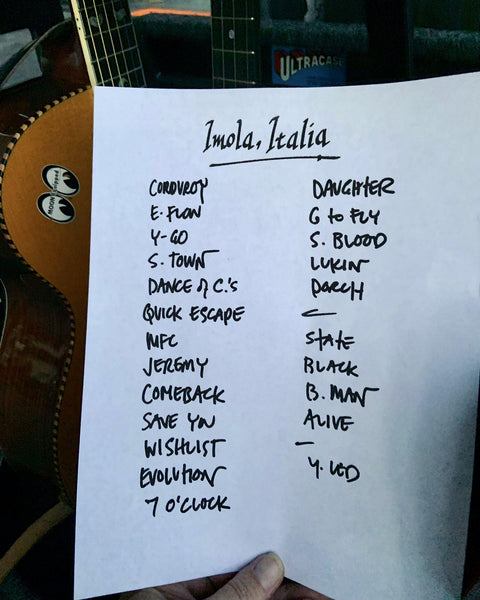 ULTRACASE
Imola, Italia
CORDUROY
E. FLOW
Y-GO
S. TOWN
DANCE of C.'s
QUICK ESCAPE
MFC
JEREMY
COMEBACK
SAVE YOU
WISHLIST
EVOLUTION
7 O'CLOCK
DAUGHTER
G to FLY
S. BLOOD
LUKIN
PORCH
STATE
BLACK
B. MAN
ALIVE
Y. LED
MOON